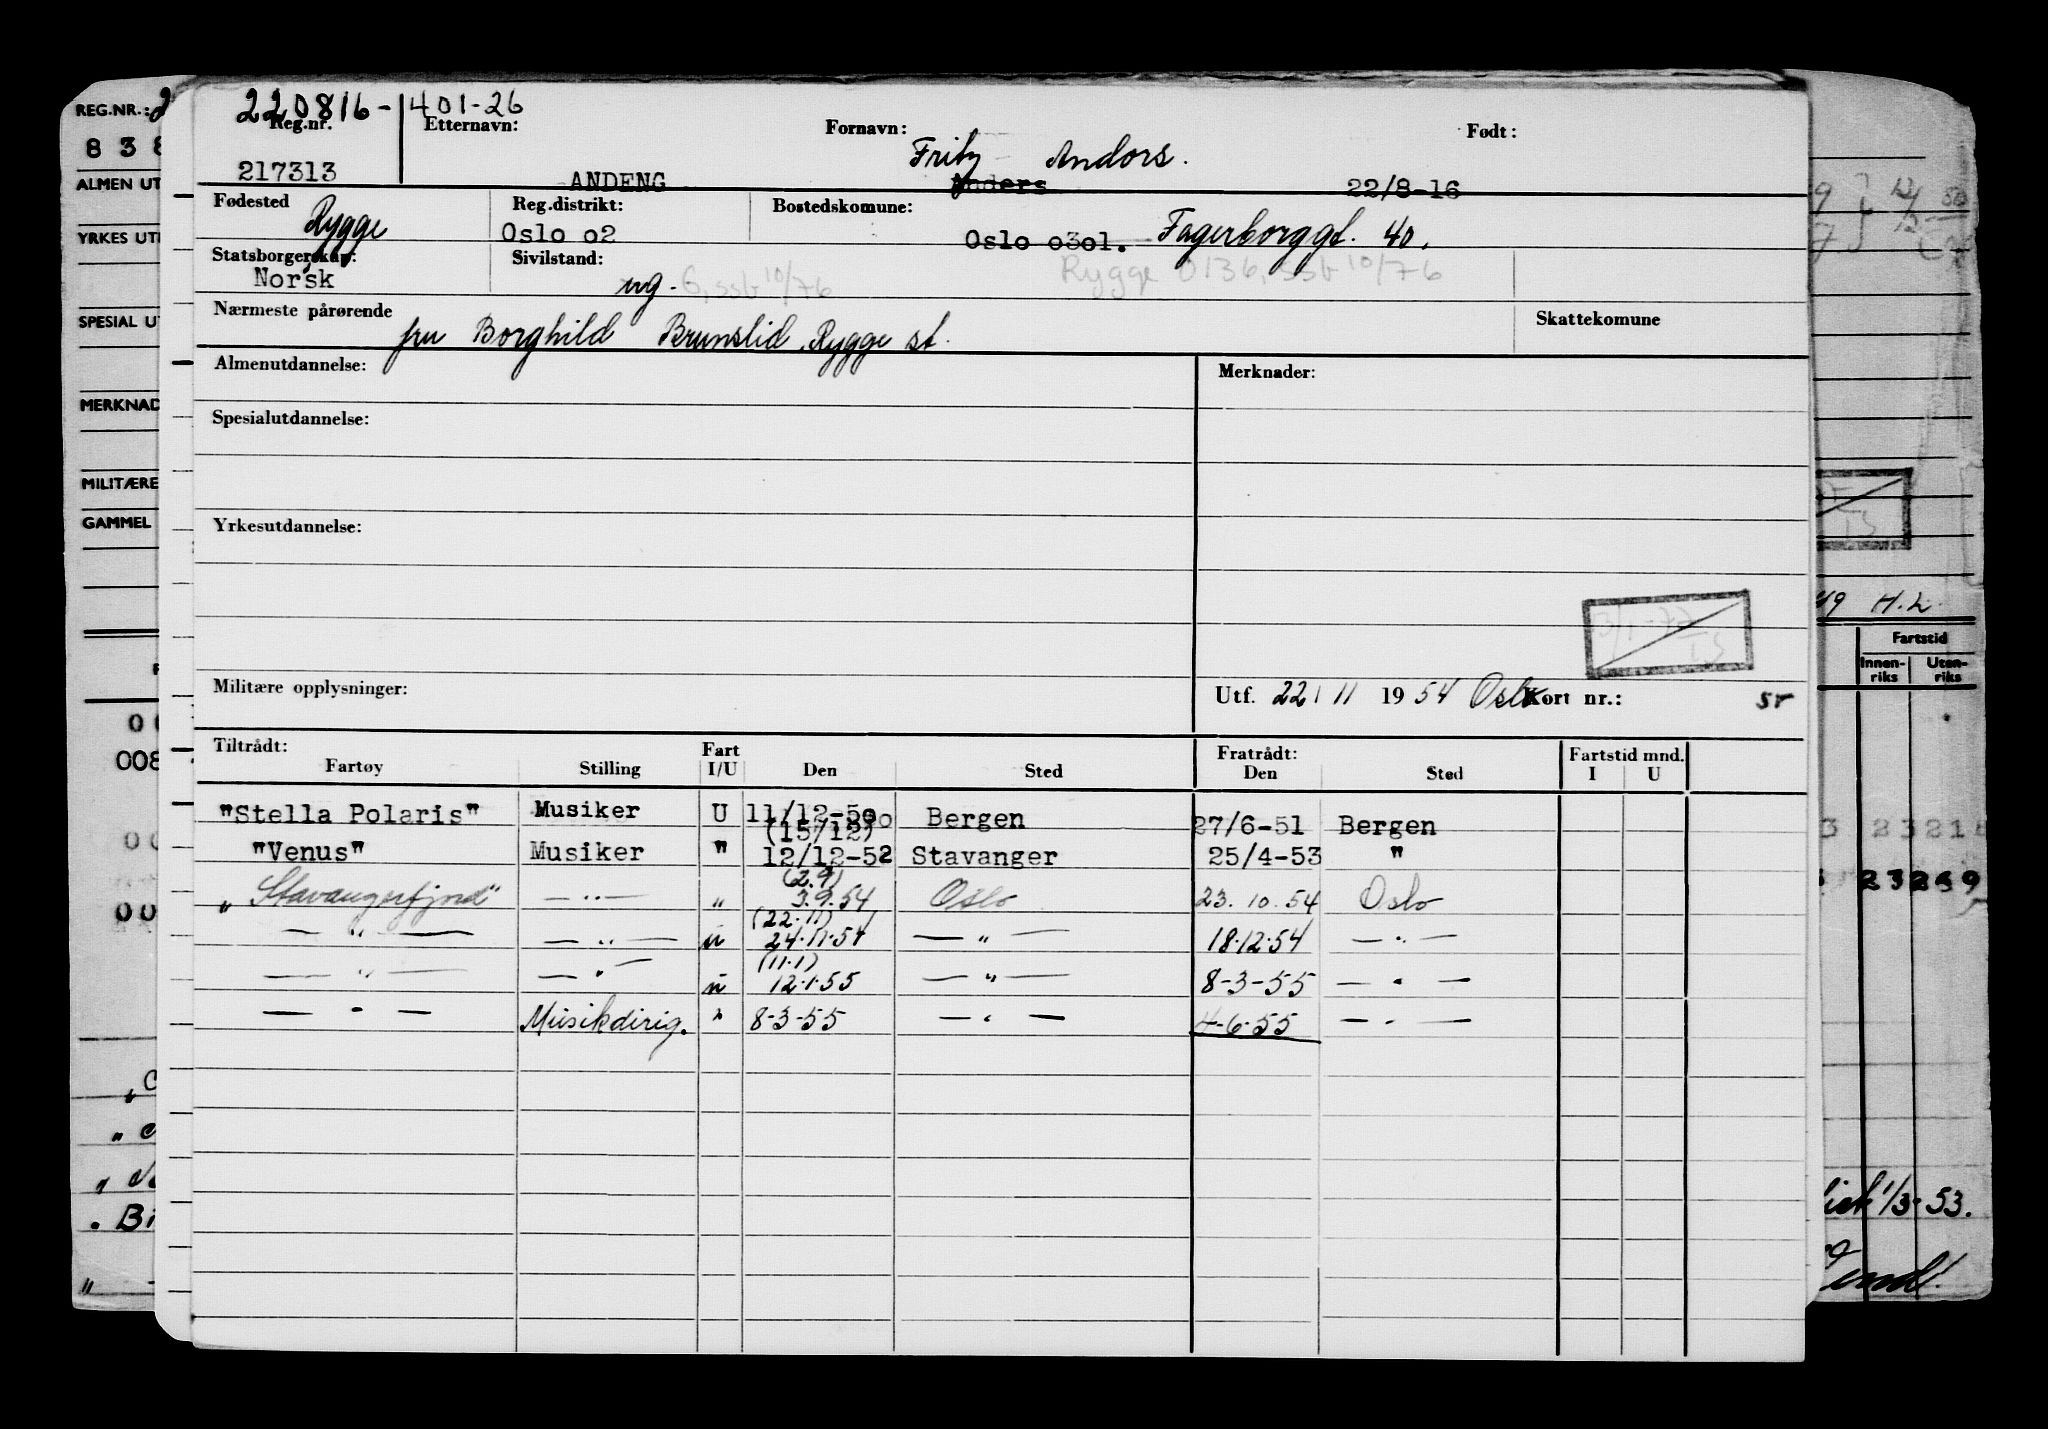 220816-401-26
Reg.nr. Etternavn: Fornavn: Født:
Fritz Andors.
217313 ANDENG Anders 22/8-16
Fødested Reg.distrikt: Bostedskomune:
Rygge Oslo o2 Oslo o3o1. Fagerborggt. 40.
Statsborgerskap: Sivilstand:
Norsk ug. 6, ssb 10/76 Rygge 0136, ssb 10/76
Nærmeste pårørende Skattekomune
fru Borghild Brunslid, Rygge st.
Almenutdannelse: Merknader:
Spesialutdannelse:
Yrkesutdannelse:
Militære opplysninger: Utf. 22/11 1954 Oslo Kort nr.:
Tiltrådt: Fratrådt: Fartstid mnd.
Fartøy Stilling Fart I/U Den Sted Den Sted I U
"Stella Polaris" Musiker U 11/12-50 Bergen 27/6-51 Bergen
(15/12)
"Venus" Musiker " 12/12-52 Stavanger 25/4-53 "
(2.9)
"Stavangerfjord" — " — " 3.9.54 Oslo 23.10.54 Oslo
(22.11)
— " — — " — u 24.11.54 — " — 18.12.54 — " —
(11.1)
— " — — " — u 12.1.55 — " — 8-3-55 — " —
— " — Musikdirig. " 8-3-55 — " — 4-6-55 — " —
REG.NR.: 2
8 3 8
ALMEN UT
YRKES UT
SPESIAL UT
MERKNAD
MILITÆRE
GAMMEL
008
. Bi
49 H.L.
Fartstid
Innen-riks Uten-riks
23215
1/3-53.